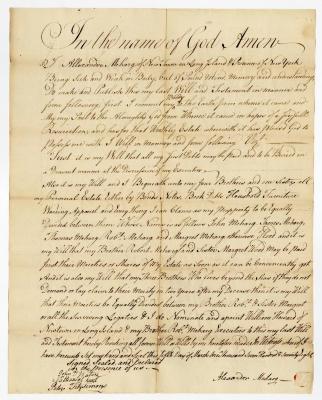 In the name of God Amen
I Allexander Meharg of Newtown in Long Island & Provence of New York
Being Sick and Weak in Body, but of Sound Mind, Memory and understanding
Do make and Publish this my last Will and Testament in manner and
form following first I commit my Body to the Earth from whence it came and
My Soul to the Almighty God from Whence it came in hopes of a Joyfull
Resurrection, and as for that Worldly Estate wherewith it has Pleased God to
Possess me with I Will in manner and form following
First it is my Will that all my Just Debts may be paid and to be Buried in
a Decent manner at the Discretion of my Executors
Also it is my Will and I Bequeath unto my four Brothers and one Sister all
my Personal Estate Either by Bonds Notes Book Debts Household Furniture
Wearing Apparel and Every thing I can Claim as my Property to be Equally
Devided between them Whose Names are as follows John Meharg James Meharg
Thomas Meharg Robt. Meharg and Margret Meharg otherwise Wood and it is
my Will that my Brother Robert Meharg and Sister Margret Wood may be Paid
their two Moeties or Shares of My Estate as Soon as it can be Conveniently got
And it is also my Will that my three Brothers Who lives beyond the Seas if they do not
Demand or lay claim to these Moieties in Years after my Decease then it is my Will
that these Moieties be Equally Devided between my Brother Robt. & Sister Margret
or all the Surviving Legatees & I do Nominate and appoint William Howard of
Newtown in Long Island & my Brother Robt. Meharg Executors to this my last Will
and Testament hereby Revoking all former Wills
have hereunto Set my hand and Seal this Day of March One Thousand Seven Hundred &
Signed Sealed and Declared
in the Presence of us
Alexander Meharg